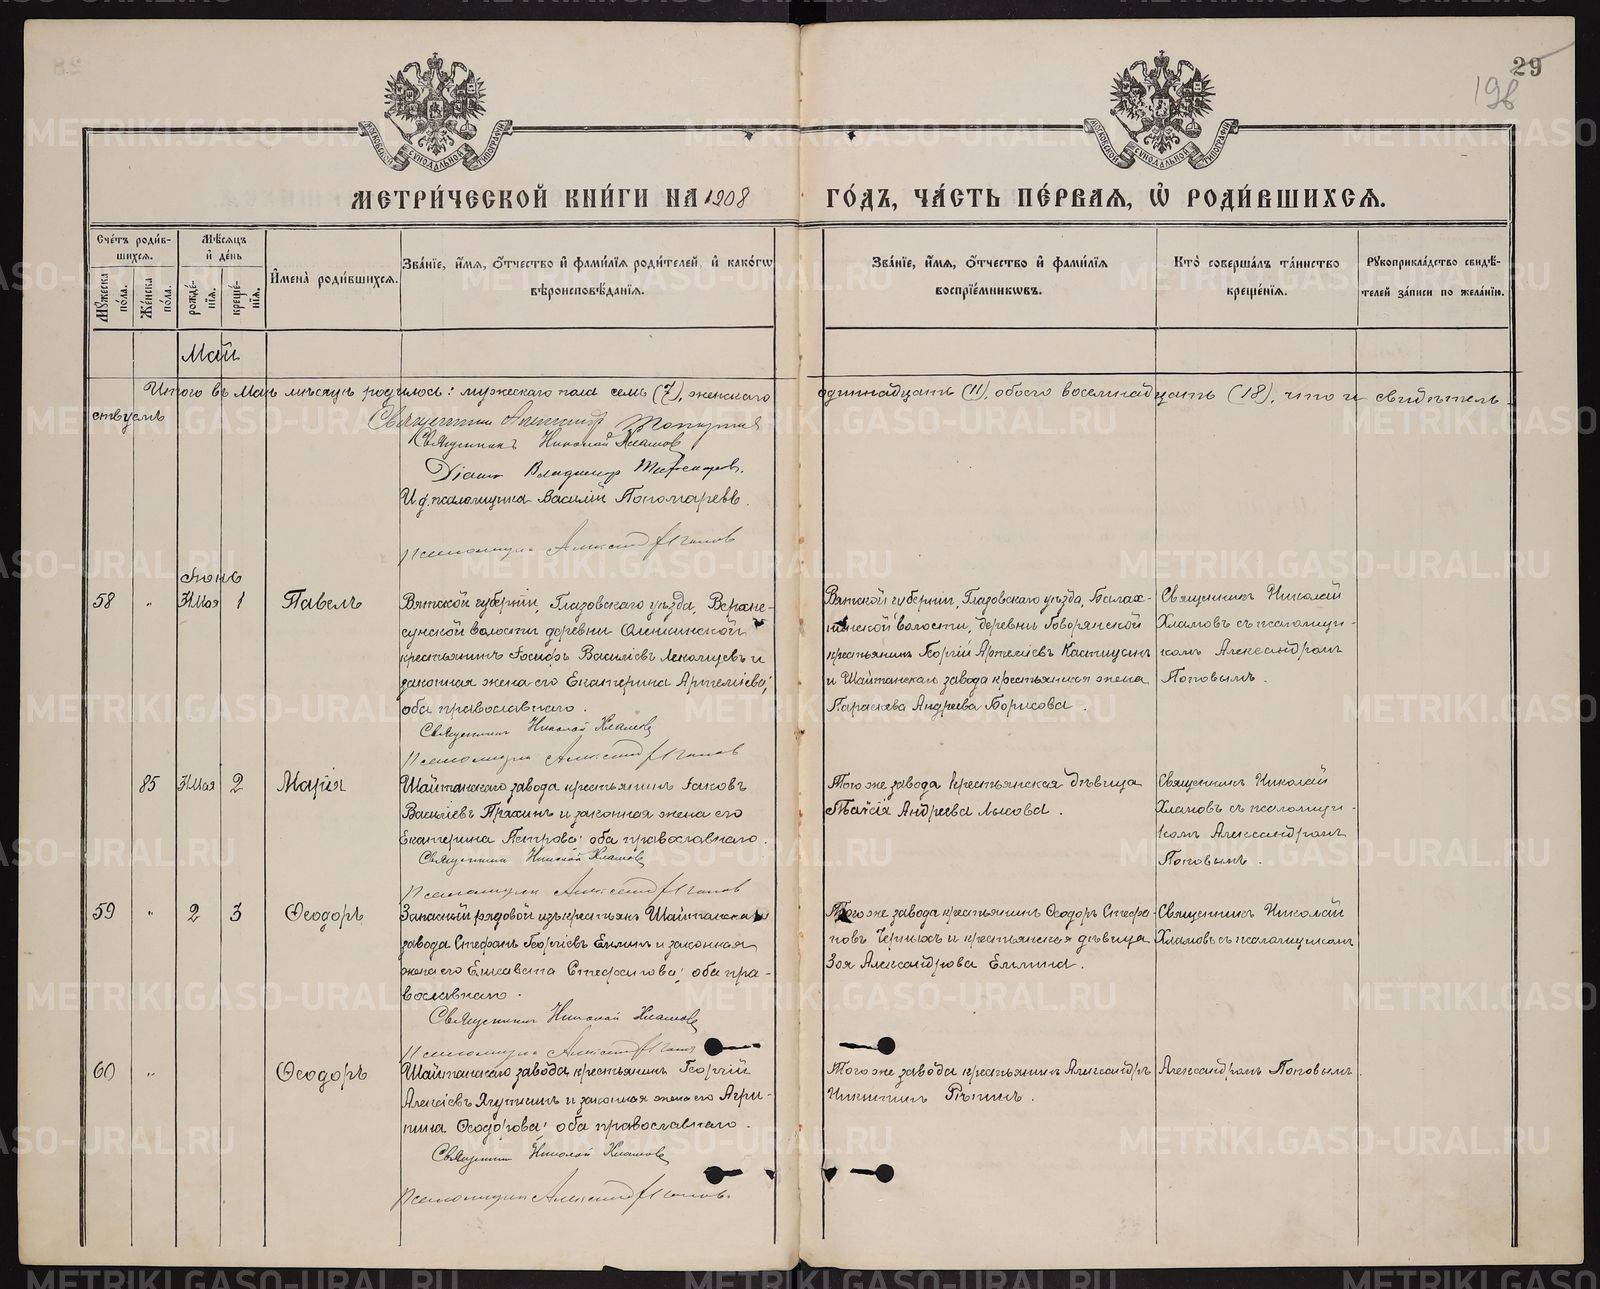 29
198
МОСКОВСКОЙ СѴНОДАЛЬНОЙ ТИПОГРАФІИ
МОСКОВСКОЙ СѴНОДАЛЬНОЙ ТИПОГРАФІИ
МЕТРИ́ЧЕСКОЙ КНИ́ГИ НА 1908 ГО́ДЪ, ЧА́СТЬ ПЕ́РВАЯ, Ѡ҆ РОДИ́ВШИХСЯ.
Сче́тъ роди́в-
шихся.
Мꙋ́жеска по́ла.
Же́нска по́ла.
Мѣ́сяцъ
и҆ де́нь
рожде́-
нїя.
креще́-
нїя.
И҆мена̀ роди́вшихся.
Зва́нїе, и҆́мя, о҆́тчество и҆ фами́лїя роди́телей, и҆ како́гѡ
вѣроисповѣ́данїя.
Зва́нїе, и҆́мя, о҆́тчество и҆ фами́лїя
воспрїе́мникѡвъ.
Кто̀ соверша́лъ та́инство
креще́нїя.
Рꙋкоприкла́дство свидѣ́-
телей за́писи по жела́нїю.
Май
Итого въ Маѣ мѣсяцѣ родилось: мужескаго пола семь (7), женскаго одиннадцать (11), обоего восемнадцать (18), что и свидѣтель
ствуемъ
Священникъ Александръ
Священникъ Николай Хламовъ
Діаконъ Владимиръ
И. д. псаломщика Василій Пономаревъ.
Псаломщикъ Александръ Поповъ
Іюнь
58
"
31 Мая
1
Павелъ
Вятской губерніи, Глазовскаго уѣзда, Верхне-
сунской волости деревни
крестьянинъ Іосифъ Василіевъ и
законная жена его Екатерина Артеміева,
оба православнаго.
Священникъ Николай Хламовъ
Псаломщикъ Александръ Поповъ
Вятской губерніи, Глазовскаго уѣзда, Балах-
тинской волости, деревни Говорянской
крестьянинъ Георгій Артеміевъ
и Шайтанскаго завода крестьянская жена
Параскева Андреева Борисова.
Священникъ Николай
Хламовъ съ псаломщи-
комъ Александромъ
Поповымъ.
85
31 Мая
2
Марія
Шайтанскаго завода крестьянинъ Іаковъ
Василіевъ Пряхинъ и законная жена его
Екатерина Петрова; оба православнаго.
Священникъ Николай Хламовъ
Псаломщикъ Александръ Поповъ
Того же завода крестьянская дѣвица
Таисія Андреева Лысова.
Священникъ Николай
Хламовъ съ псаломщи-
комъ Александромъ
Поповымъ.
59
"
2
3
Ѳеодоръ
Запасный рядовой изъ крестьянъ Шайтанскаго
завода Стефанъ Георгіевъ Емлинъ и законная
жена его Елисавета Стефанова; оба пра-
вославнаго.
Священникъ Николай Хламовъ
Псаломщикъ Александръ Поповъ
Того же завода крестьянинъ Ѳеодоръ Стефа
новъ Черныхъ и крестьянская дѣвица
Зоя Александрова Емлина.
Священникъ Николай
Хламовъ съ псаломщикомъ
60
"
Ѳеодоръ
Шайтанскаго завода крестьянинъ Георгій
Алексіевъ Ягуткинъ и законная жена его Агри-
пина Ѳеодорова; оба православнаго.
Священникъ Николай Хламовъ
Псаломщикъ Александръ Поповъ.
Того же завода крестьянинъ Александръ
Никитинъ Рѣпинъ.
Александромъ Поповымъ.
METRIKI.GASO-URAL.RU